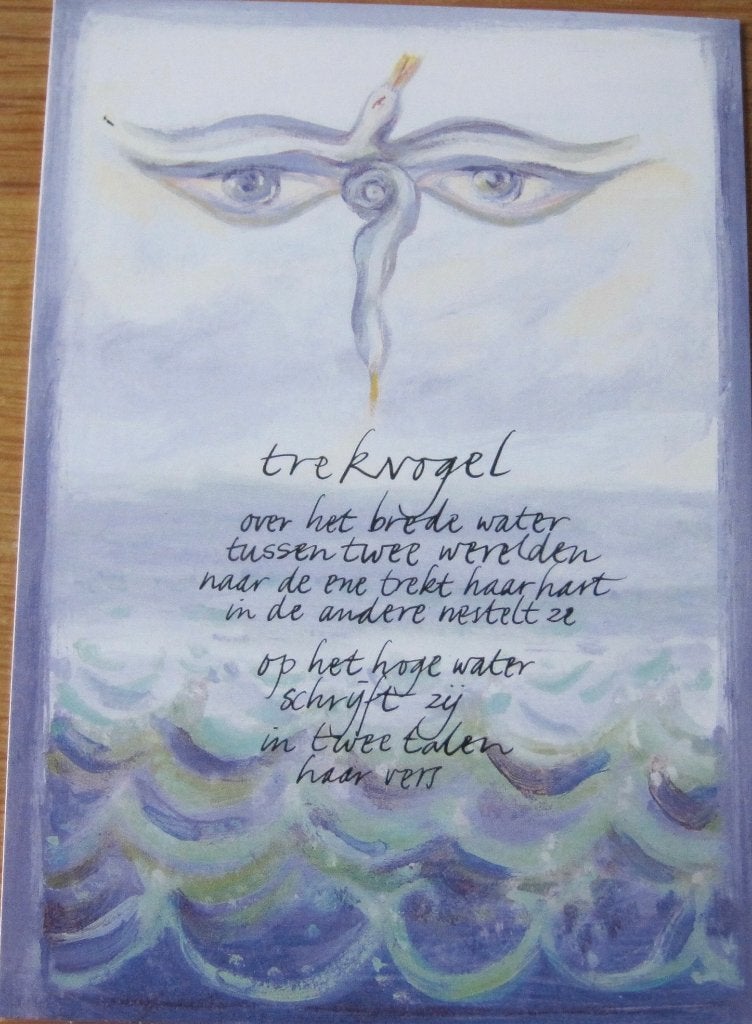 trekvogel
over het brede water
tussen twee werelden
naar de ene trekt haar hart
in de andere nestelt ze
op het hoge water
schrijft zij
in twee talen
haar vers